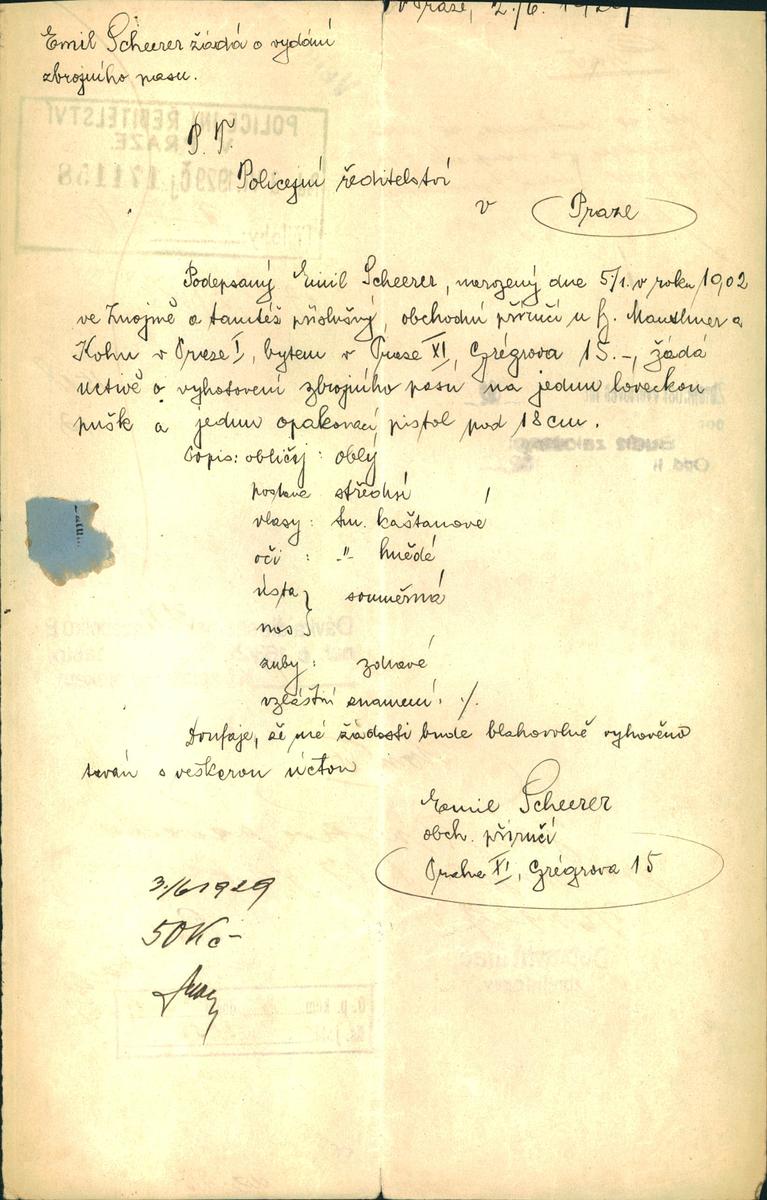 v Praze, 2./6. 1929
Emil Scheerer žádá o vydání
zbrojního pasu.
P. T.
Policejní ředitelství
v Praze
Podepsaný Emil Scheerer, narozený dne 5/1. v roku 1902
ve Znojmě a tamtéž příslušný, obchodní příručí u fy. Mauthner a
Kohn v Praze I, bytem v Praze XI, Grégrova 15.-, žádá
uctivě o vyhotovení zbrojního pasu na jednu loveckou
pušk a jednu opakovací pistol pod 18 cm.
Popis: obličej : oblý
postava střední
vlasy : tm. kaštanové
oči : -"- hnědé
ústa } souměrná
nos }
zuby : zdravé
vzláštní znamení: ./.
Doufaje, že mé žádosti bude blahovolně vyhověno
trván s veškerou úctou
Emil Scheerer
obch. příručí
Praha XI, Grégrova 15
3./6 1929
50 Kč-